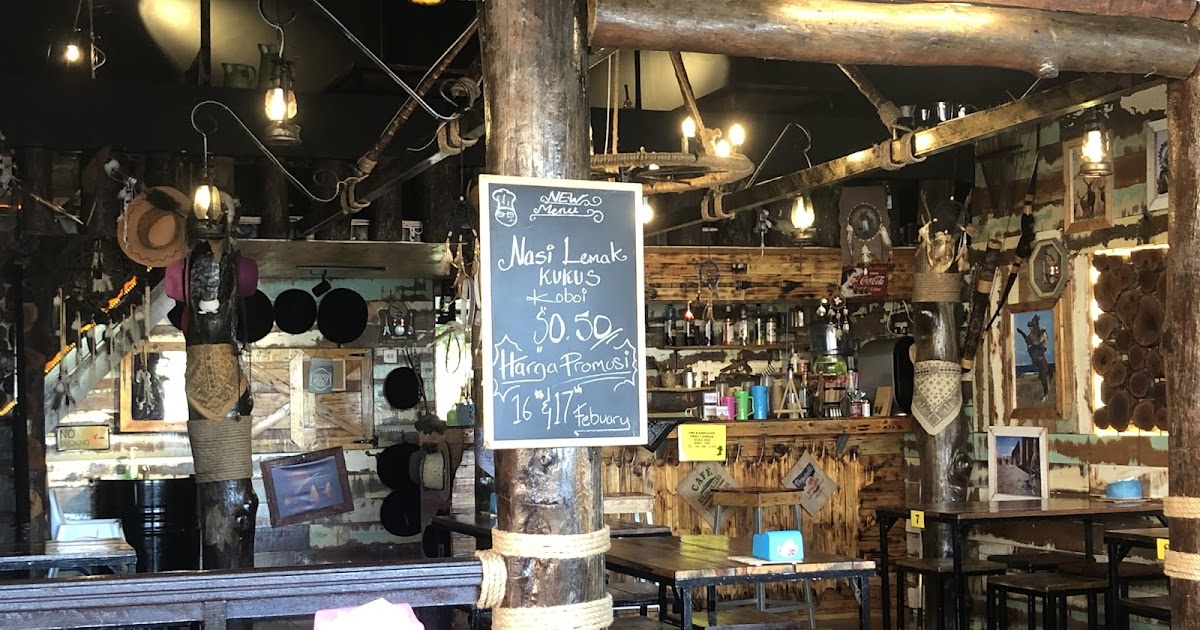 NEW
Menu
Nasi Lemak
KUKUS
Koboi
$0.50/
Harga Promosi
16" & 17" Febuary
NO
Coca-Cola
CAFE
7